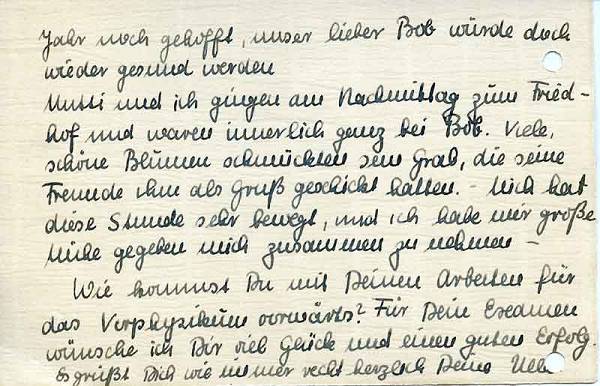 Jahr noch gehofft, unser lieber Bob würde doch
wieder gesund werden
Mutti und ich gingen am Nachmittag zum Fried-
hof und waren innerlich ganz bei Bob. Viele,
schöne Blumen schmückten sein Grab, die seine
Freunde ihm als Gruß geschickt hatten. – Mich hat
diese Stunde sehr bewegt, und ich habe mir große
Mühe gegeben mich zusammen zu nehmen –
Wie kommst Du mit Deinen Arbeiten für
das Vorphysikum vorwärts? Für Dein Examen
wünsche ich Dir viel Glück und einen guten Erfolg.
Es grüßt Dich wie immer recht herzlich Deine